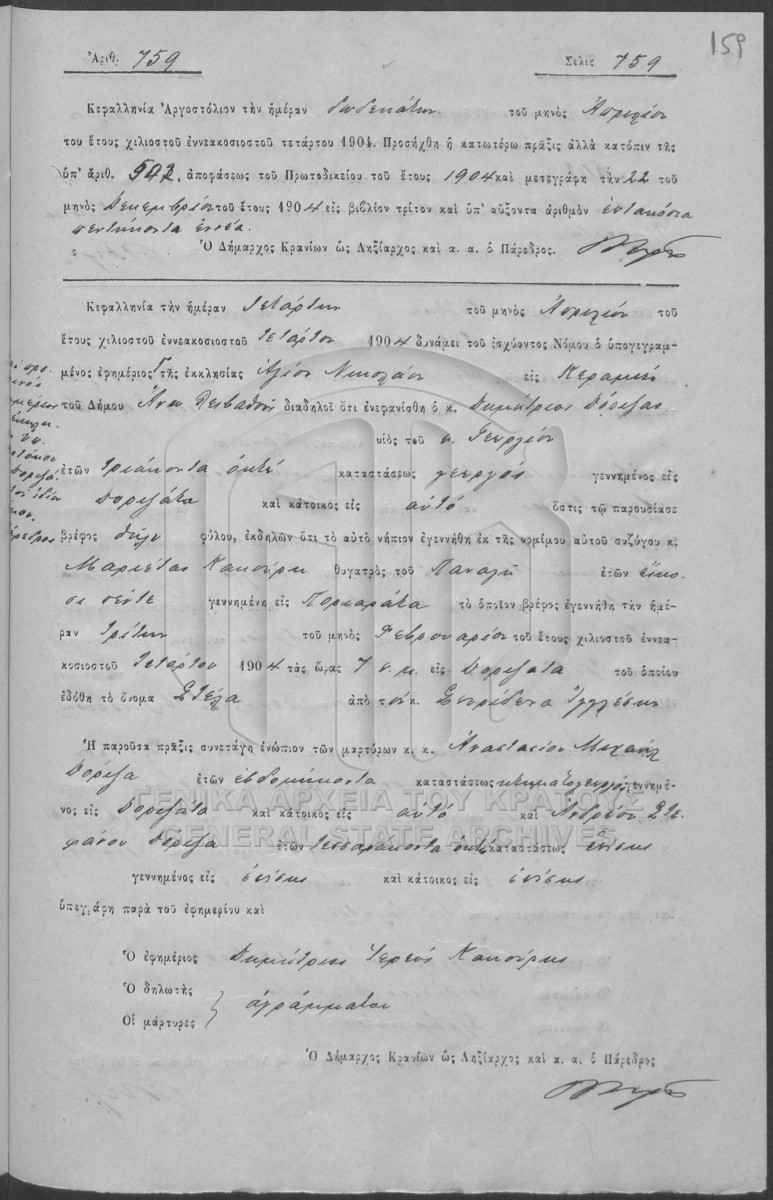 159
Ἀριθ. 759 Σελὶς 759
Κεφαλληνία Ἀργοστόλιον τὴν ἡμέραν δωδεκάτην τοῦ μηνὸς Ἀπριλίου
του ἔτους χιλιοστοῦ ἐννεακοσιοστοῦ τετάρτου 1904. Προσήχθη ἡ κατωτέρω πρᾶξις ἀλλὰ κατόπιν τῆς
ὑπ' ἀριθ. 592 ἀποφάσεως τοῦ Πρωτοδικείου τοῦ ἔτους 1904 καὶ μετεγράφη τὴν 22 τοῦ
μηνὸς Δεκεμβρίου τοῦ ἔτους 1904 εἰς βιβλίον τρίτον καὶ ὑπ' αὔξοντα ἀριθμὸν ἑπτακόσια
πεντήκοντα ἐννέα.
Ὁ Δήμαρχος Κρανίων ὡς Ληξίαρχος καὶ α. α. ὁ Πάρεδρος.
Κεφαλληνία τὴν ἡμέραν Τετάρτην τοῦ μηνὸς Ἀπριλίου τοῦ
ἔτους χιλιοστοῦ ἐννεακοσιοστοῦ Τετάρτου 1904 δυνάμει τοῦ ἰσχύοντος Νόμου ὁ ὑπογεγραμ-
μένος ἐφημέριος τῆς ἐκκλησίας Ἁγίου Νικολάου εἰς Κεραμιὲς
τοῦ Δήμου Ἄνω Λειβαθοῦς διαδηλοῖ ὅτι ἐνεφανίσθη ὁ κ. Δημήτριος Δόριζας
υἱὸς τοῦ κ. Γεωργίου
ἐτῶν τριάκοντα ὀκτὼ καταστάσεως γεωργὸς γεννημένος εἰς
Δοριζάτα καὶ κάτοικος εἰς αὐτό ὅστις τῷ παρουσίασε
βρέφος θῆλυ φύλου, ἐκδηλῶν ὅτι τὸ αὐτὸ νήπιον ἐγεννήθη ἐκ τῆς νομίμου αὐτοῦ συζύγου κ.
Μαριέτας Κακούρη θυγατρὸς τοῦ Παναγῆ ἐτῶν εἴκο-
σι πέντε γεννημένη εἰς Ποριαράτα τὸ ὁποῖον βρέφος ἐγεννήθη τὴν ἡμέ-
ραν Τρίτην τοῦ μηνὸς Φεβρουαρίου τοῦ ἔτους χιλιοστοῦ ἐννεα-
κοσιοστοῦ Τετάρτου 1904 τὰς ὥρας 7 π. μ. εἰς Δοριζάτα τοῦ ὁποίου
ἐδόθη τὸ ὄνομα Στέλα ἀπὸ τὸν κ. Σπυρίδωνα Ἰγγλέσην
Ἡ παροῦσα πρᾶξις συνετάγη ἐνώπιον τῶν μαρτύρων κ. κ. Ἀναστασίου Μιχαὴλ
Δόριζα ἐτῶν ἑβδομήκοντα καταστάσεως κτηματογεωργὸς γεννημέ-
νος εἰς Δοριζάτα καὶ κάτοικος εἰς αὐτό καὶ Ἀνδρέου Στε-
φάνου Δόριζα ἐτῶν τεσσαράκοντα ὀκτὼ καταστάσεως ἐπίσης
γεννημένος εἰς ἐπίσης καὶ κάτοικος εἰς ἐπίσης
ὑπεγράφη παρὰ τοῦ ἐφημερίου καὶ
Ὁ ἐφημέριος Δημήτριος Ἱερεὺς Κακούρης
Ὁ δηλωτὴς
Οἱ μάρτυρες } ἀγράμματοι
Ὁ Δήμαρχος Κρανίων ὡς Ληξίαρχος καὶ α. α. ὁ Πάρεδρος
ΓΕΝΙΚΑ ΑΡΧΕΙΑ ΤΟΥ ΚΡΑΤΟΥΣ
GENERAL STATE ARCHIVES